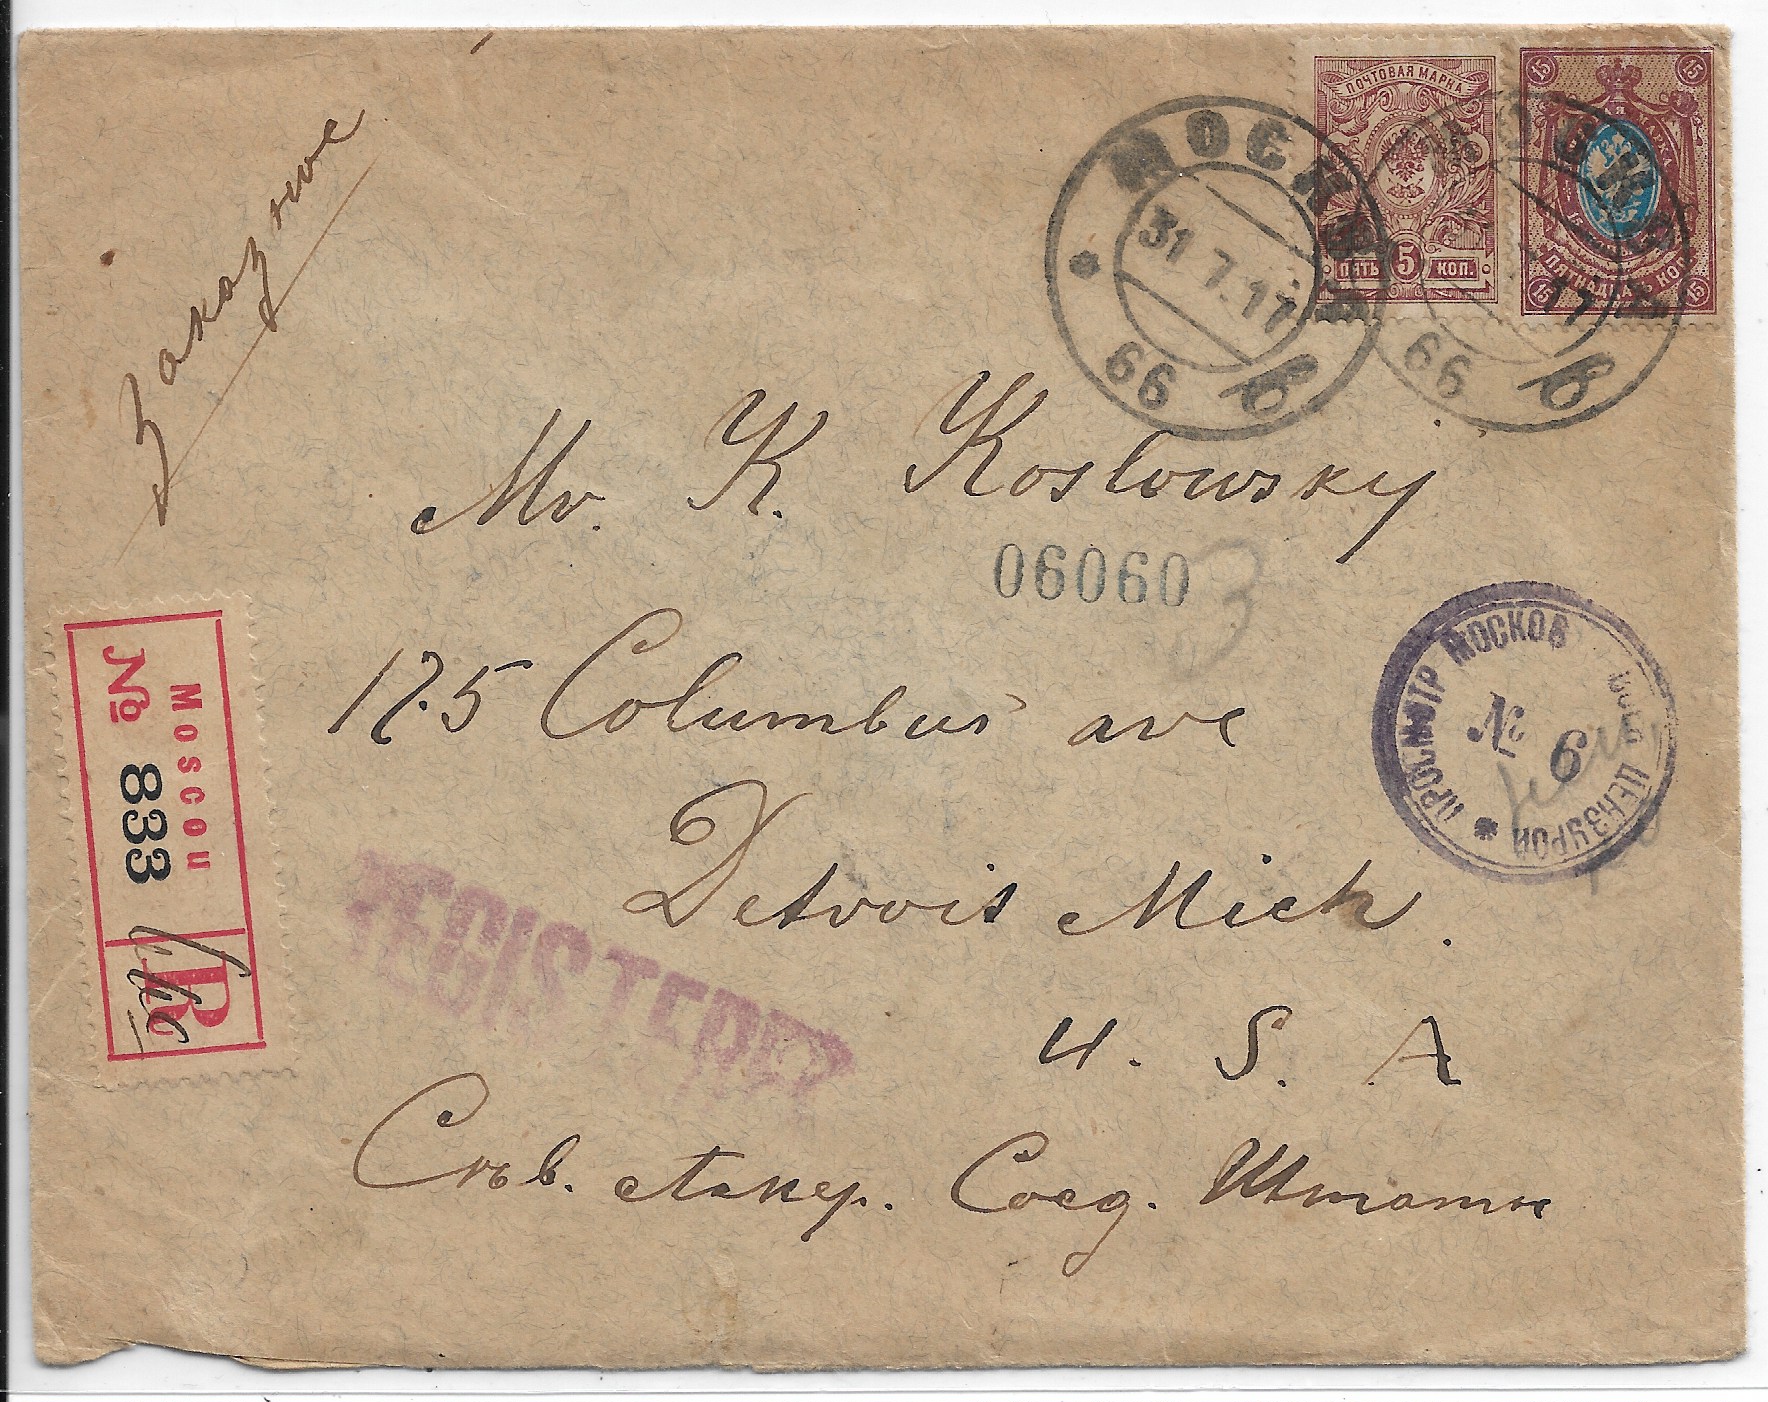 Заказное
ПОЧТОВАЯ МАРКА
ПЯТЬ 5 КОП.
15 15
МАРКА
ПЯТНАДЦАТЬ КОП.
15 15
МОСКВА
31 7.17
66 в
МОСКВА
17
66 в
Mr. K. Koslowsky
06060
3
175 Columbus ave
Detroit Mich.
U. S. A
Сѣв. Амер. Соед. Штаты
Moscou
№ 833
R
REGISTERED
ПРОСМОТР МОСКОВ ВОЕН ЦЕНЗУРОЙ
№ 6